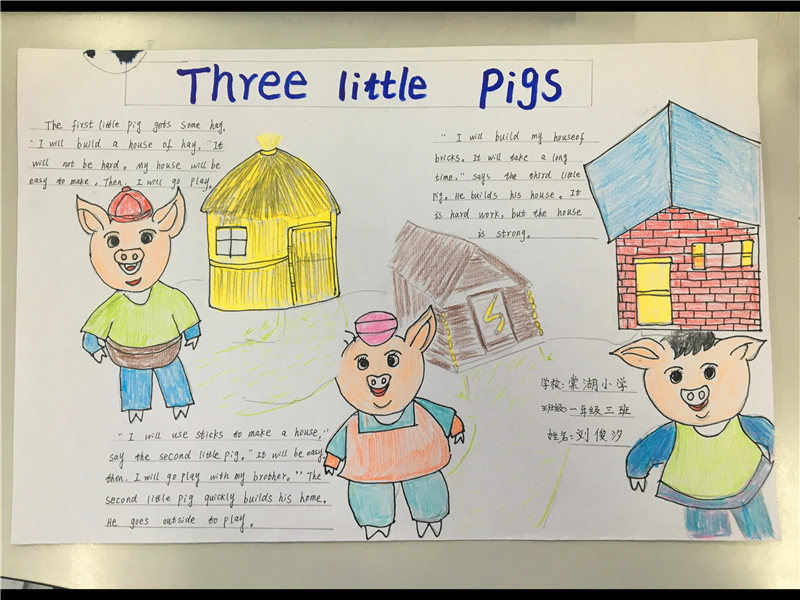 Three little Pigs
The first little pig gets some hay,
"I will build a house of hay, "It
will not be hard. My house will be
easy to make. Then, I will go play.
" I will build my houseof
bricks. It will take a long
time," says the third little
pig. He builds his house. It
is hard work, but the house
is strong.
学校: 棠湖小学
班级: 一年级三班
姓名: 刘俊汐
" I will use sticks to make a house,"
say the second little pig. "It will be easy,
then. I will go play with my brother." The
second little pig quickly builds his home.
He goes outside to play.